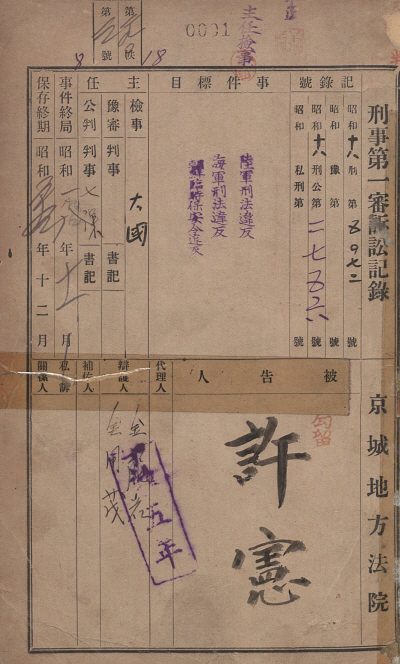 0001
主任検事
第 号
第 号
8 18
刑事第一審訴訟記録
京城地方法院
記録號
昭和十八年 刑 第五九七二號
昭和 豫 第 號
昭和十八年 刑公第二七五六號
昭和 私刑第 號
事件標目
陸軍刑法違反
海軍刑法違反
朝鮮臨時保安令違反
主任
検事 大國
豫審判事 書記
公判判事 書記
事件終局 昭和一八年十一月
保存終期 昭和 年十二月
被告人
許憲
勾留
代理人
辯護人
補佐人
私訴關係人
五年